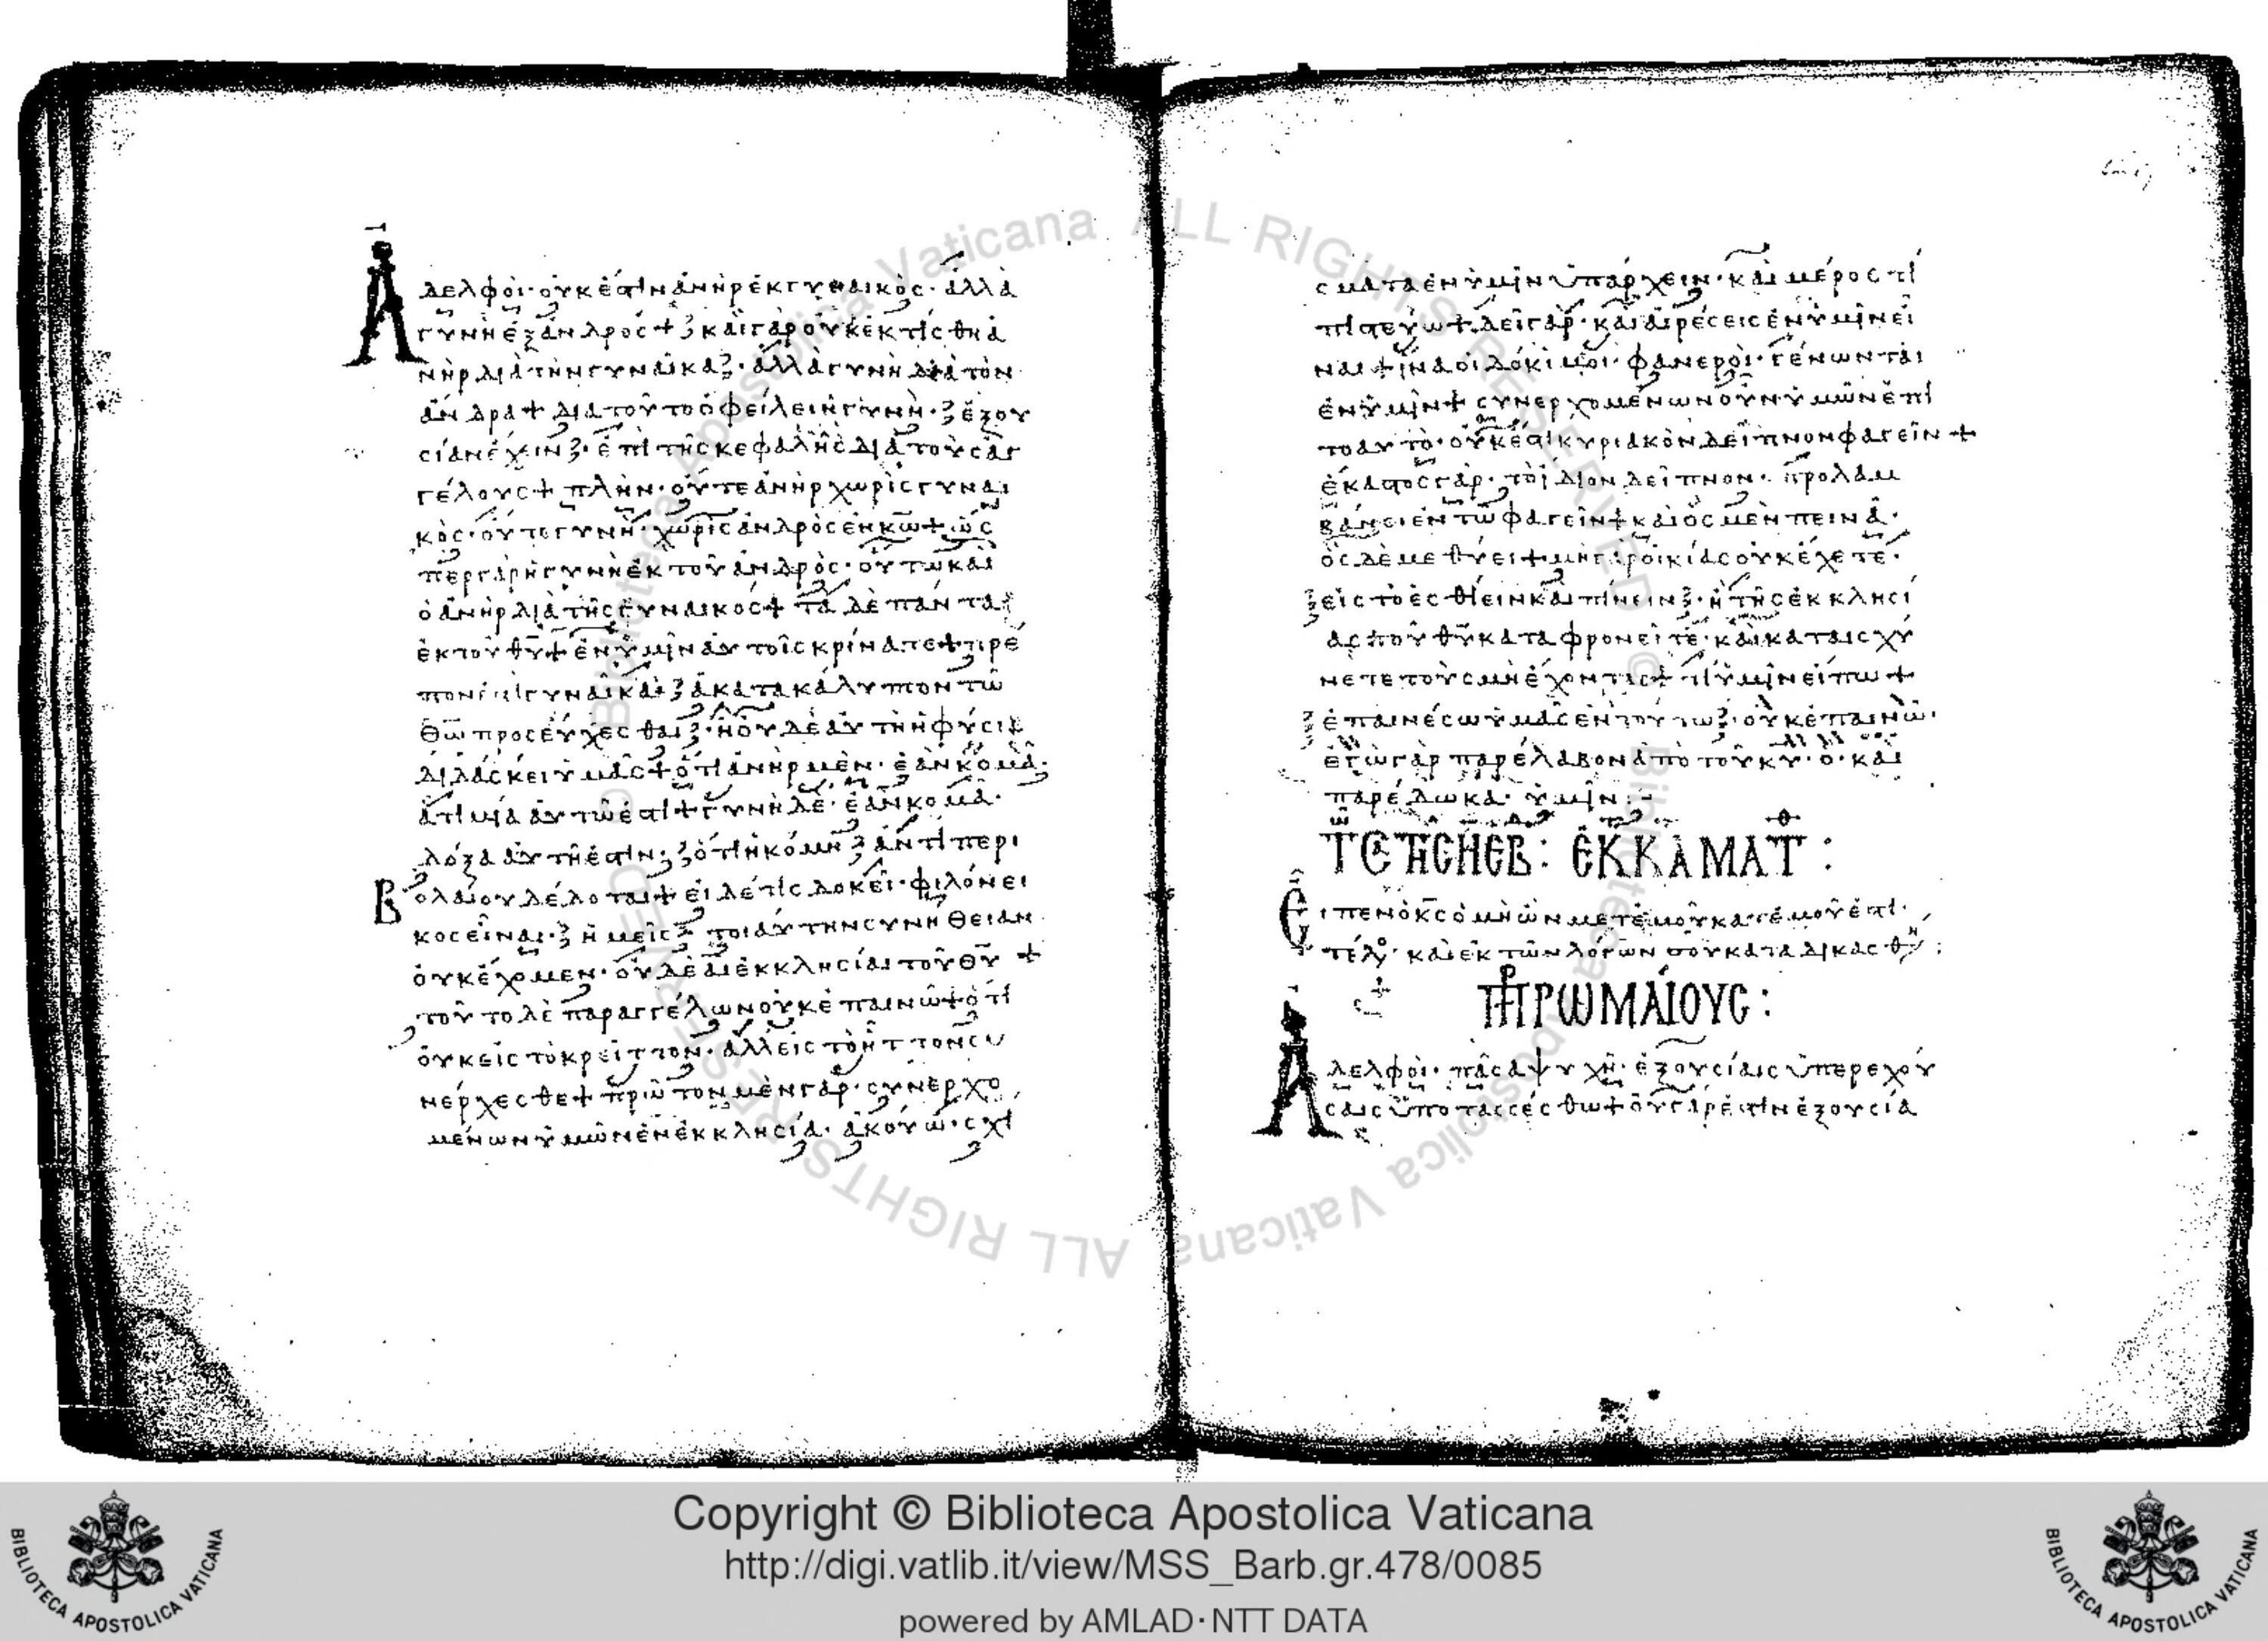 Ἀδελφοὶ· οὐκ ἔστιν ἀνὴρ ἐκ γυναικὸς· ἀλλὰ
γυνὴ ἐξ ἀνδρός + καὶ γὰρ οὐκ ἐκτίσθη ἀ
νὴρ διὰ τὴν γυναῖκα· ἀλλὰ γυνὴ διὰ τὸν
ἄνδρα + διὰ τοῦτο ὀφείλει ἡ γυνὴ· ἐξου
σίαν ἔχειν· ἐπὶ τῆς κεφαλῆς διὰ τοὺς ἀγ
γέλους + πλὴν· οὔτε ἀνὴρ χωρὶς γυναι
κὸς· οὔτε γυνὴ· χωρὶς ἀνδρὸς ἐν κω + ὡς
περ γὰρ ἡ γυνὴ ἐκ τοῦ ἀνδρὸς· οὕτω καὶ
ὁ ἀνὴρ διὰ τῆς γυναικός + τὰ δὲ πάντα
ἐκ τοῦ θυ + ἐν ὑμῖν αὐτοῖς κρίνατε + πρέ
πον ἐστὶ γυναῖκα ἀκατακάλυπτον τῶ
θω προσεύχεσθαι· ἢ οὐδὲ αὐτὴ ἡ φύσις
διδάσκει ὑμᾶς + ὅτι ἀνὴρ μὲν· ἐὰν κομᾶ·
ἀτιμία αὐτῶ ἐστι + γυνὴ δὲ· ἐὰν κομᾶ·
δόξα αὐτῆ ἐστιν· ὅτι ἡ κόμη ἀντὶ περι
Β βολαίου δέδοται + εἰ δέ τις δοκεῖ· φιλόνει
κος εἶναι· ἡμεῖς τοιαύτην συνήθειαν
οὐκ ἔχομεν· οὐδὲ αἱ ἐκκλησίαι τοῦ θυ +
τοῦτο δὲ παραγγέλων οὐκ ἐπαινῶ + ὅτι
οὐκ εἰς τὸ κρεῖττον· ἀλλ εἰς τὸ ἧττον συ
νέρχεσθε + πρῶτον μὲν γὰρ· συνερχο
μένων ὑμῶν ἐν ἐκκλησία· ἀκούω· σχί
σματα ἐν ὑμῖν ὑπάρχειν· καὶ μέρος τι
πιστεύω + δεῖ γὰρ· καὶ αἱρέσεις ἐν ὑμῖν εἶ
ναι + ἵνα οἱ δόκιμοι· φανεροὶ· γένωνται
ἐν ὑμῖν + συνερχομένων οὖν ὑμῶν ἐπὶ
τοαυτὸ· οὐκ ἔστι κυριακὸν δεῖπνον φαγεῖν +
ἕκαστος γὰρ· τὸ ἴδιον δεῖπνον· προλαμ
βάνει ἐν τῶ φαγεῖν + καὶ ὃς μὲν πεινᾶ·
ὃς δὲ μεθύει + μὴ γὰρ οἰκίας οὐκ ἔχετε·
εἰς τὸ ἐσθίειν καὶ πίνειν· ἢ τῆς ἐκκλησί
ας τοῦ θυ καταφρονεῖτε· καὶ καταισχύ
νετε τοὺς μὴ ἔχοντας + τί ὑμῖν εἴπω +
ἐπαινέσω ὑμᾶς ἐν τούτω· οὐκ ἐπαινῶ·
ἐγὼ γὰρ παρέλαβον ἀπὸ τοῦ κυ· ὃ· καὶ
παρέδωκα· ὑμῖν :-
ἐκ κα ματθ :
Εἶπεν ὁ κς ὁ μὴ ὢν μετ ἐμοῦ κατ ἐμοῦ ἐστι·
τέλος καὶ ἐκ τῶν λόγων σου καταδικασθη :
πρ ρωμαίους :
Ἀδελφοὶ· πᾶσα ψυχὴ· ἐξουσίαις ὑπερεχού
σαις ὑποτασσέσθω + οὐ γάρ ἐστιν ἐξουσία
Copyright © Biblioteca Apostolica Vaticana
http://digi.vatlib.it/view/MSS_Barb.gr.478/0085
powered by AMLAD·NTT DATA
BIBLIOTECA APOSTOLICA VATICANA
BIBLIOTECA APOSTOLICA VATICANA
© Biblioteca Apostolica Vaticana ALL RIGHTS RESERVED
© Biblioteca Apostolica Vaticana ALL RIGHTS RESERVED